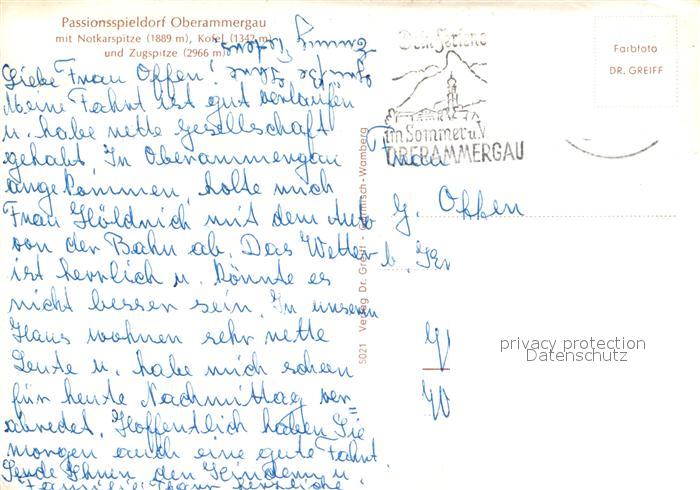 Passionsspieldorf Oberammergau
mit Notkarspitze (1889 m), Kofel (1342 m)
und Zugspitze (2966 m)
Liebe Frau Offen!
Meine Fahrt ist gut verlaufen
u. habe nette Gesellschaft
gehabt. In Oberammergau
angekommen, holte mich
Frau Höldrich mit dem Auto
von der Bahn ab. Das Wetter
ist herrlich u. könnte es
nicht besser sein. In unserem
Haus wohnen sehr nette
Leute u. habe mich schon
für heute Nachmittag ver=
abredet. Hoffentlich haben Sie
morgen auch eine gute Fahrt.
Sende Ihnen, den Kindern u.
herzliche
5021 Verlag Dr. Greiff - Garmisch-Wamberg
Dein Ferien
im Sommer u.
OBERAMMERGAU
Farbfoto
DR. GREIFF
Frau
G. Offen
b.
privacy protection
Datenschutz